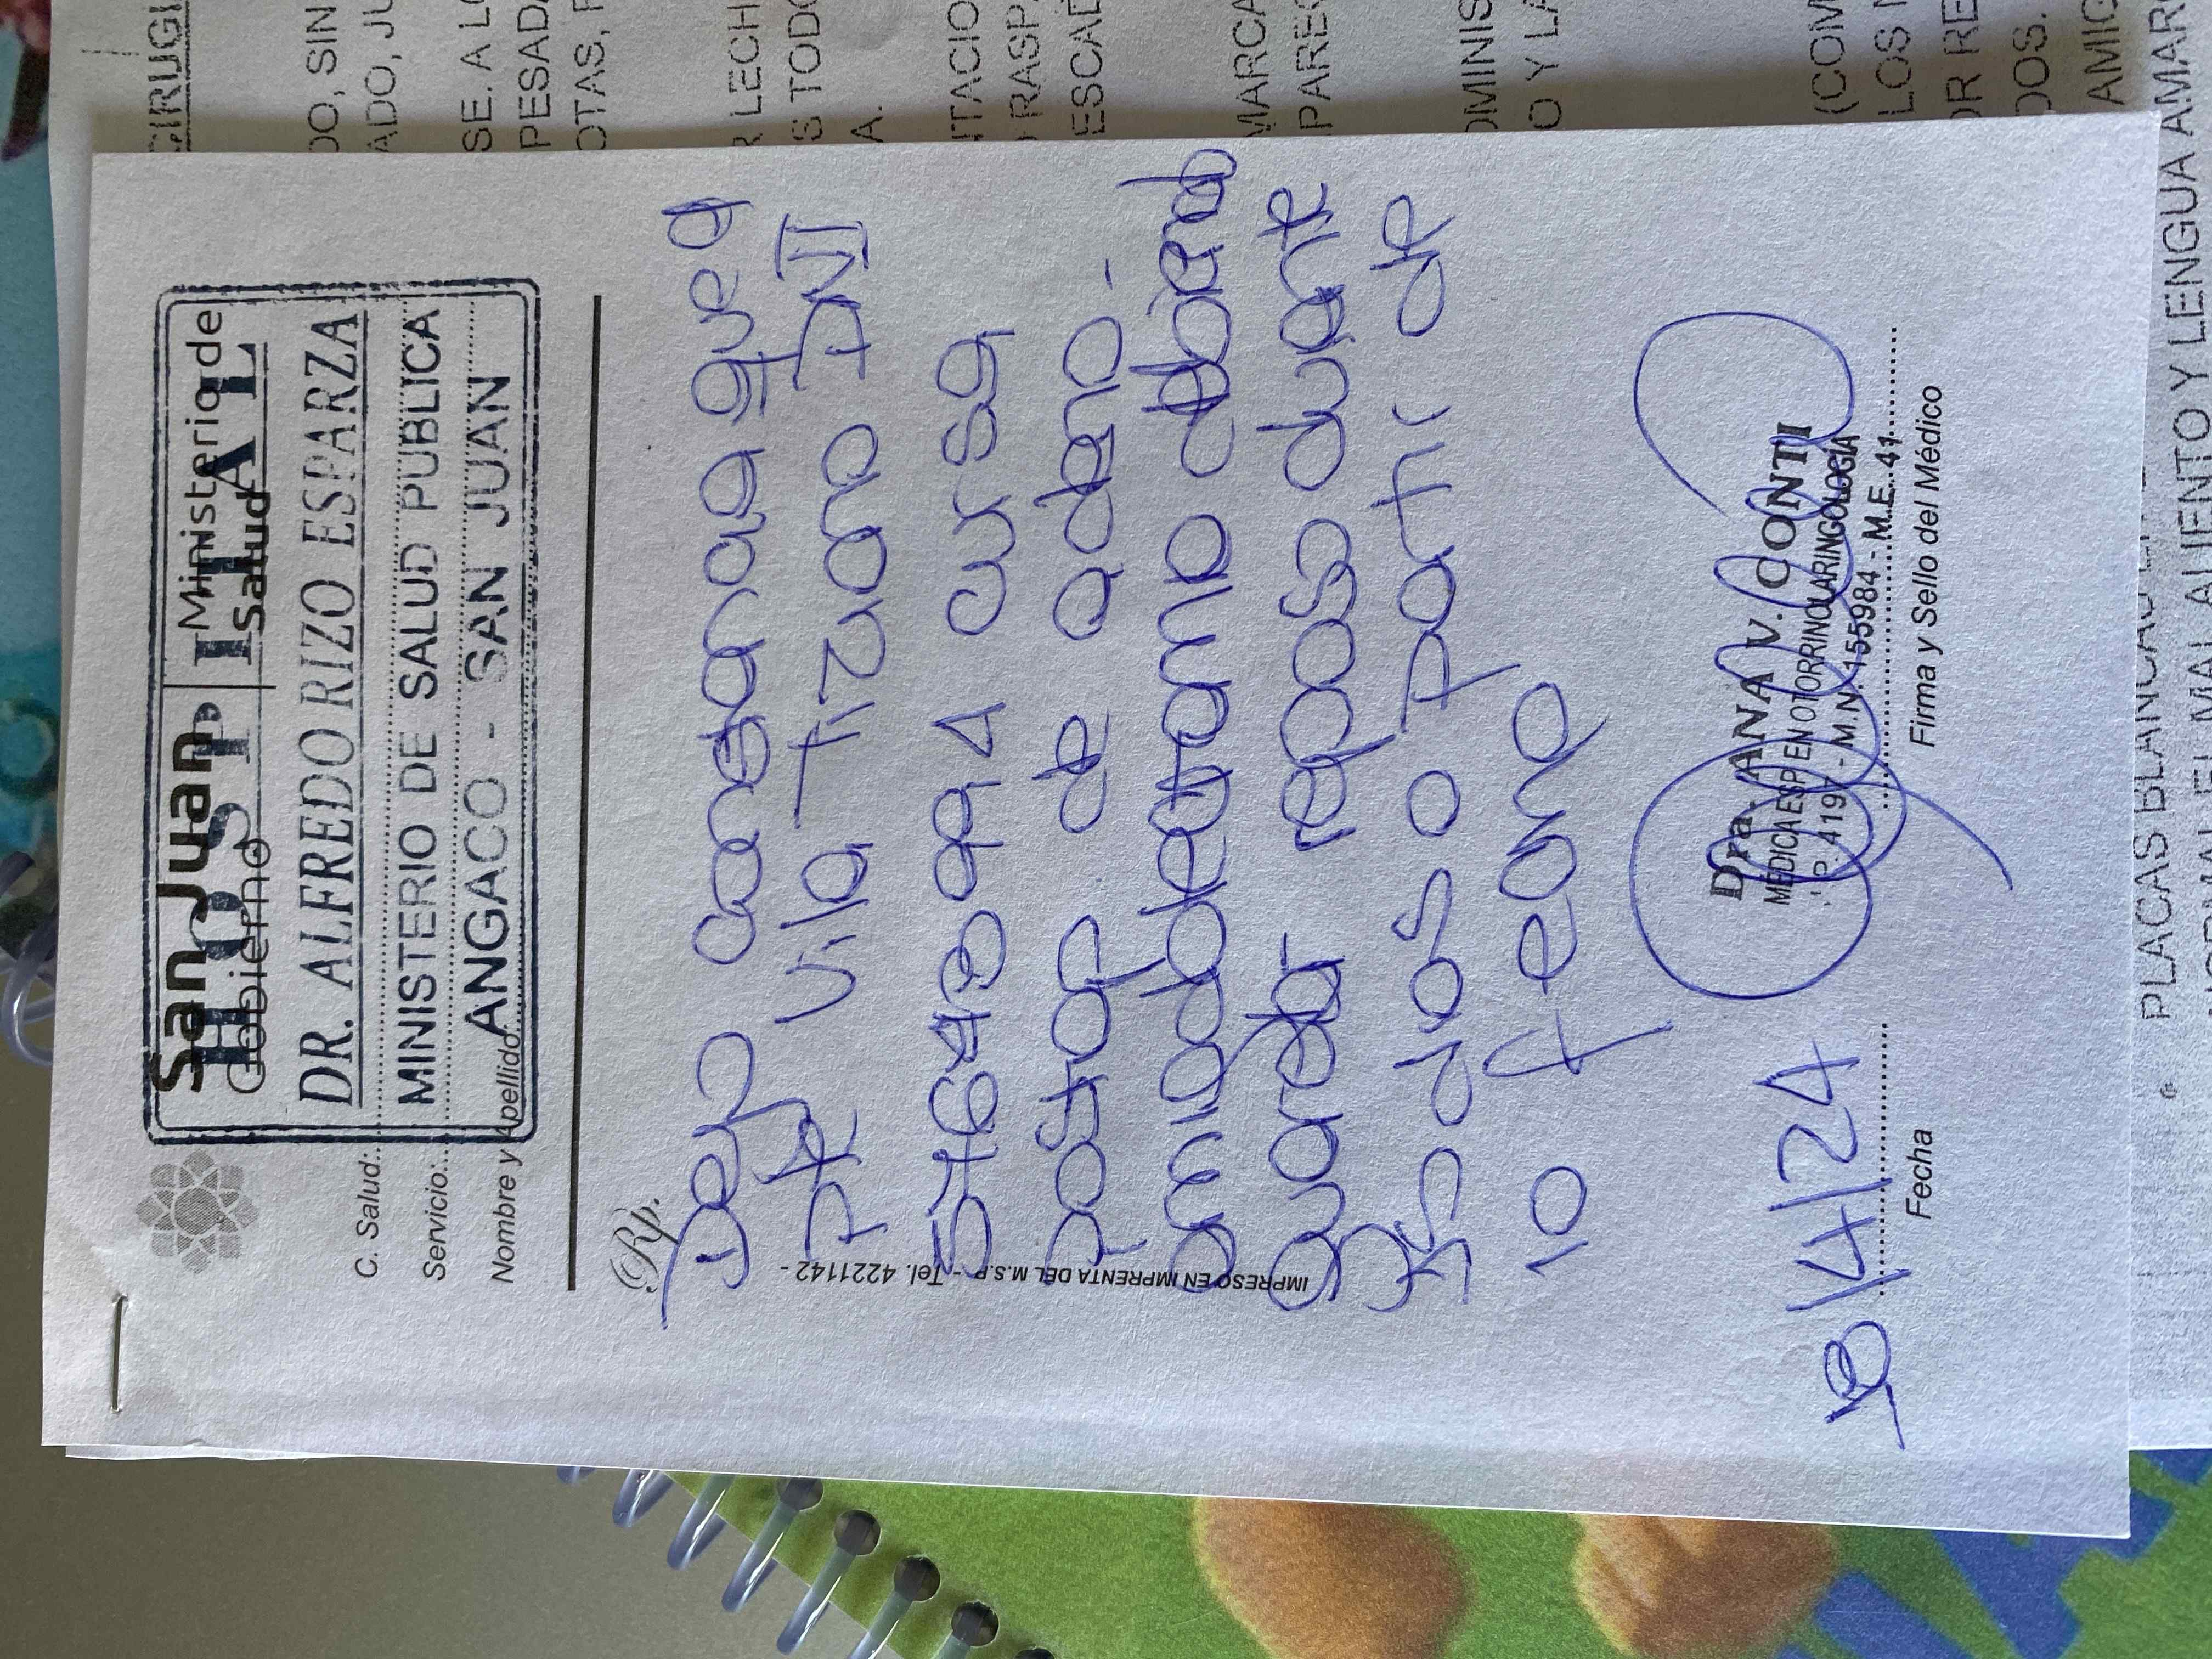 San Juan
Gobierno
Ministerio de
Salud
HOSPITAL
DR. ALFREDO RIZO ESPARZA
C. Salud:
MINISTERIO DE SALUD PUBLICA
Servicio:
ANGACO - SAN JUAN
Nombre y Apellido
Rp.
Dejo constancia que el
Pte Vila Tiziano DNI
cursa
postop de adeno-
amigdalectomia debiendo
guardar reposo durante
dias a partir de
la fecha
/4/24
Fecha
Dra. ANA V. CONTI
MEDICA ESP EN OTORRINOLARINGOLOGIA
M.P. 4197 - M.N. 155984 - M.E. 41
Firma y Sello del Médico
IMPRESO EN IMPRENTA DEL M.S.P. - Tel. 4221142 -
CIRUGI
DO, SIN
ADO, JU
SE. A LO
PESADA
OTAS, F
R LECH
S TODO
A.
NTACIO
O RASPA
ESCAD
MARCA
PAREC
OMINIS
O Y LA
(COM
LOS
OR RE
DOS.
AMIG
• PLACAS BLANCAS
MAL ALIENTO Y LENGUA AMAR